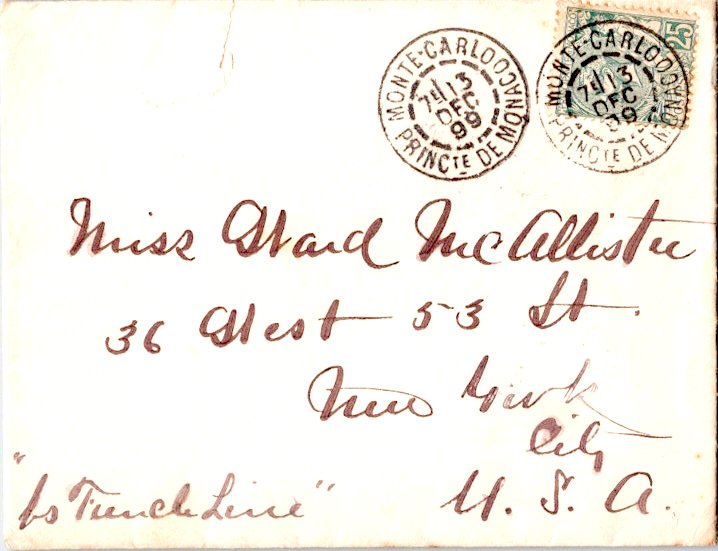 MONTE-CARLO
7E 13
DEC
99
PRINCTE DE MONACO
MONTE-CARLO
7E 13
DEC
99
PRINCTE DE MONACO
25
Miss Ward McAllister
36 West 53 St.
New York
City
U. S. A.
"French Line"